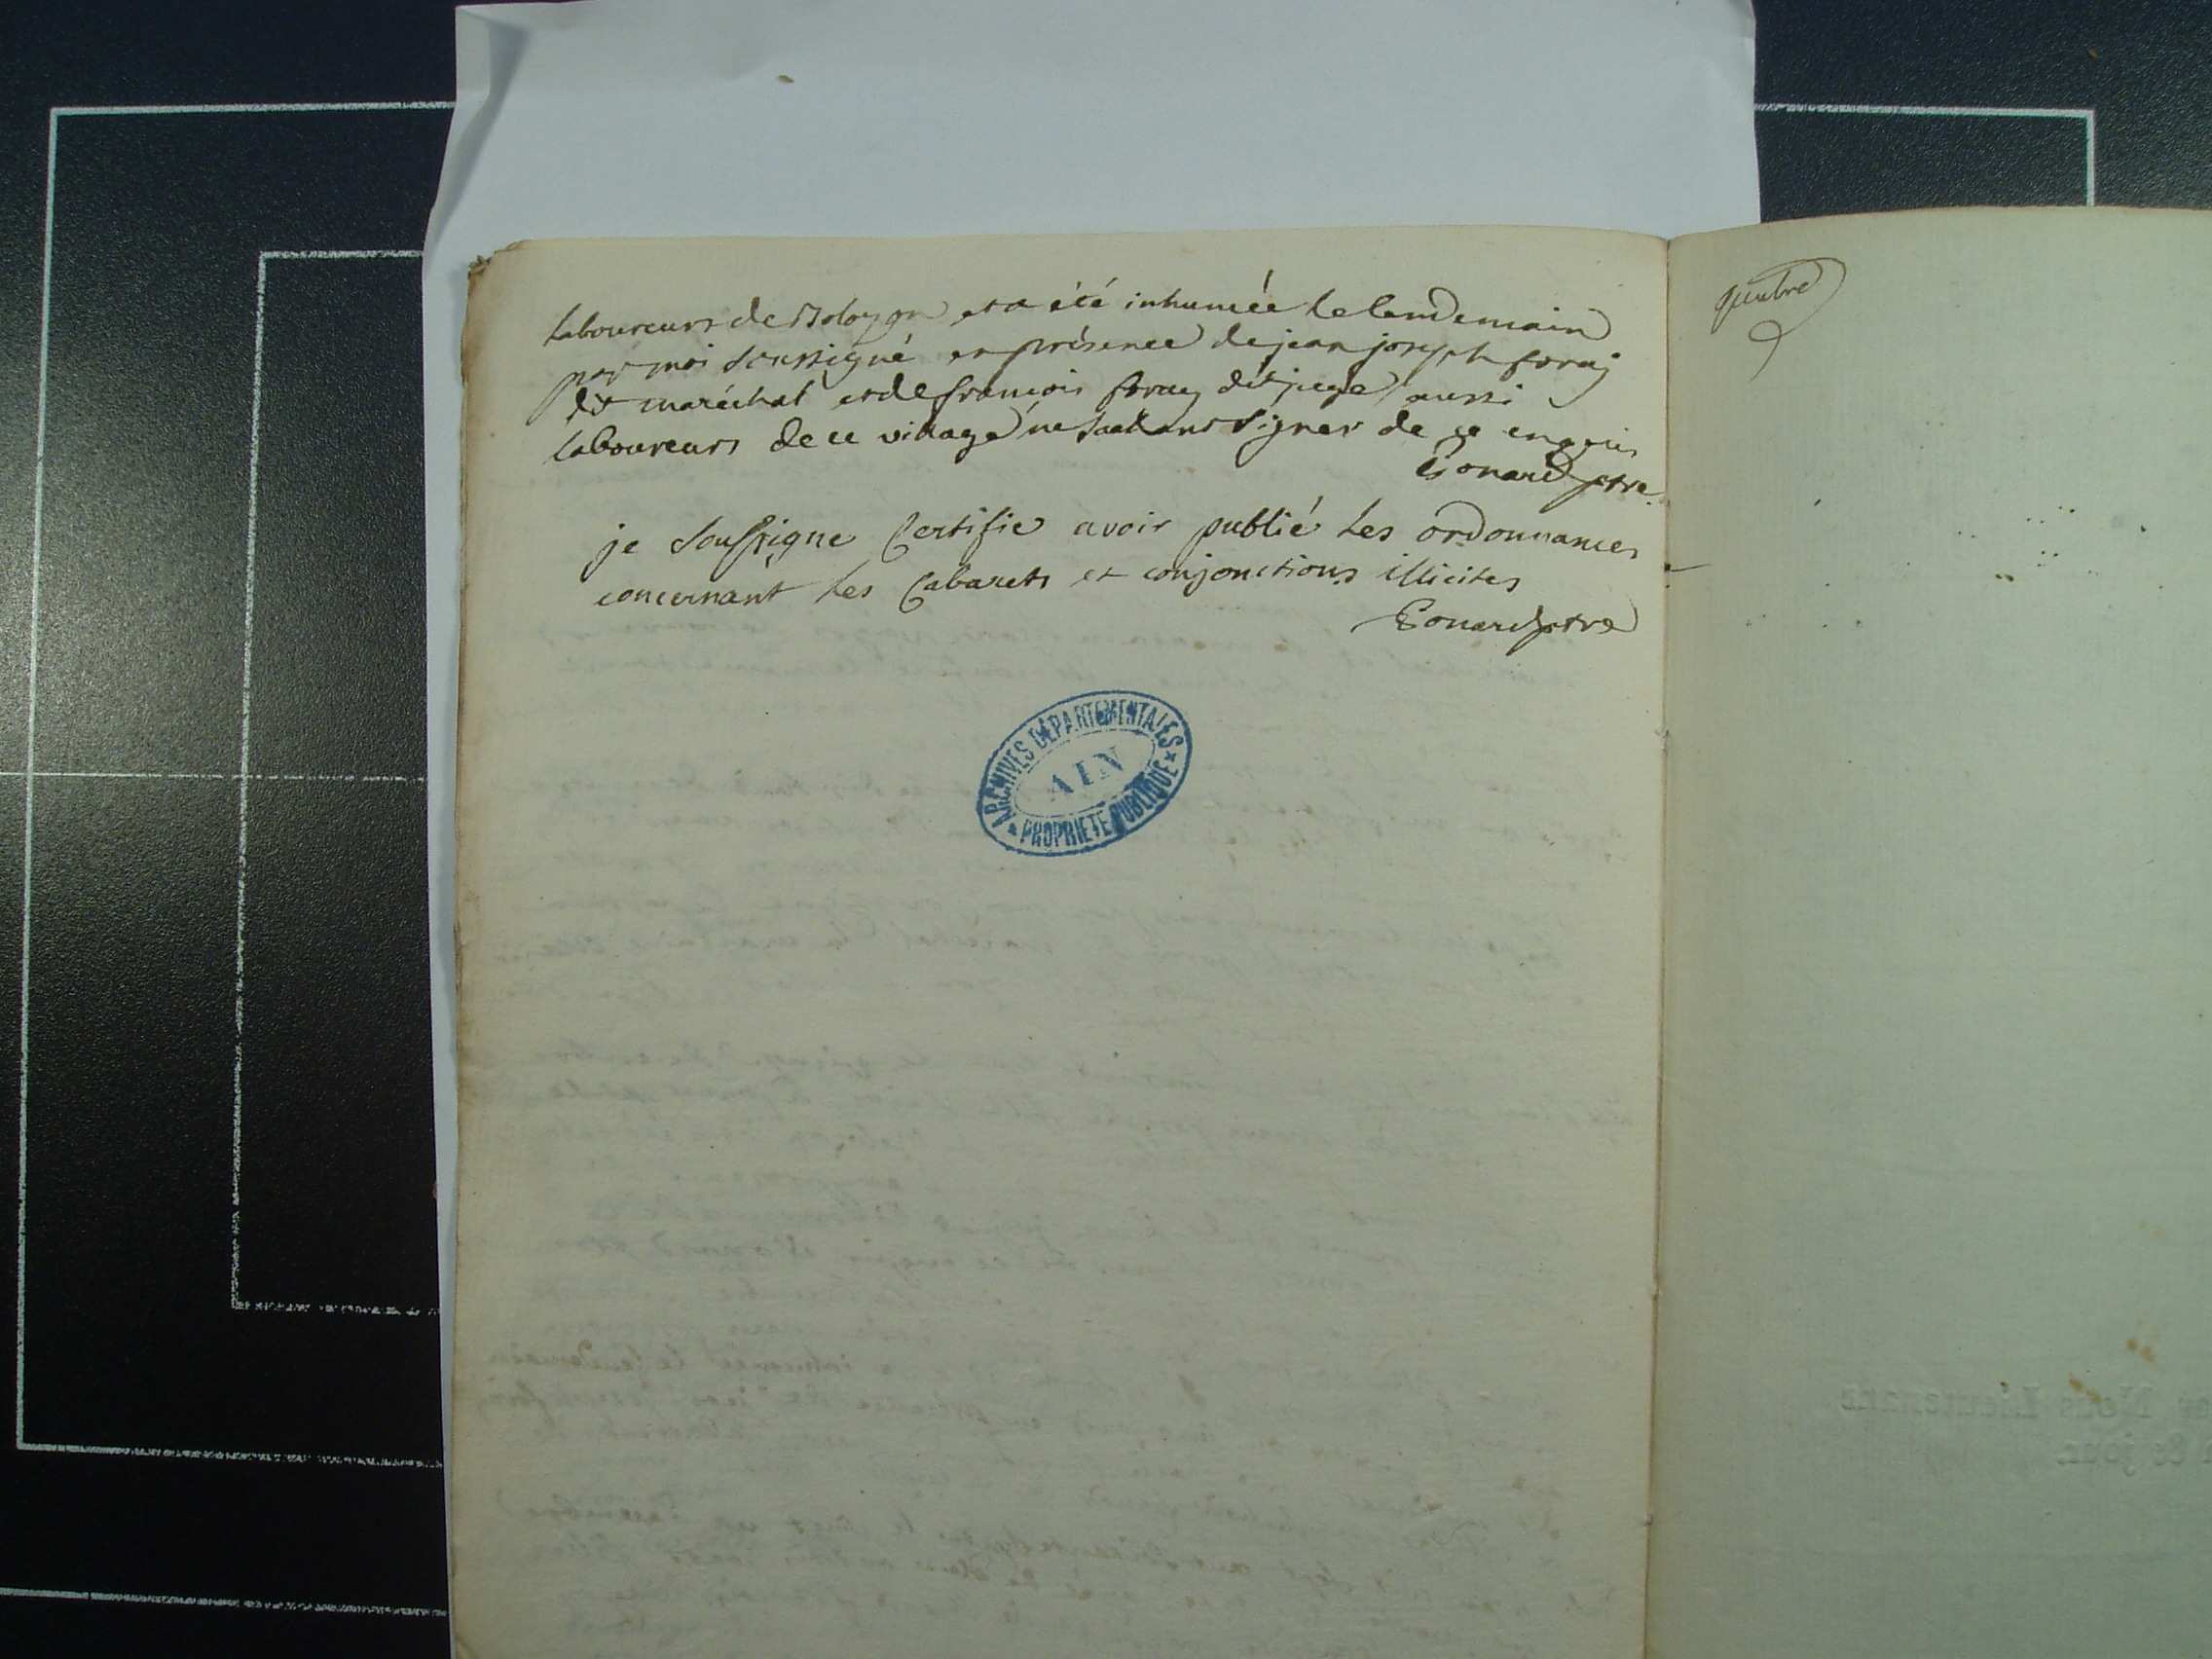 laboureurs de Bolozon et a été inhumée le lendemain
par moi soussigné en présence de jean joseph foray
dit maréchal et de françois foray dit juge aussi
laboureurs de ce village ne sachant signer de ce enquis
Gonard ptre
je soussigne Certifie avoir publié les ordonnances
concernant les Cabarets et conjonctions illicites
Gonard ptre
ARCHIVES DÉPARTEMENTALES
AIN
PROPRIÉTÉ PUBLIQUE